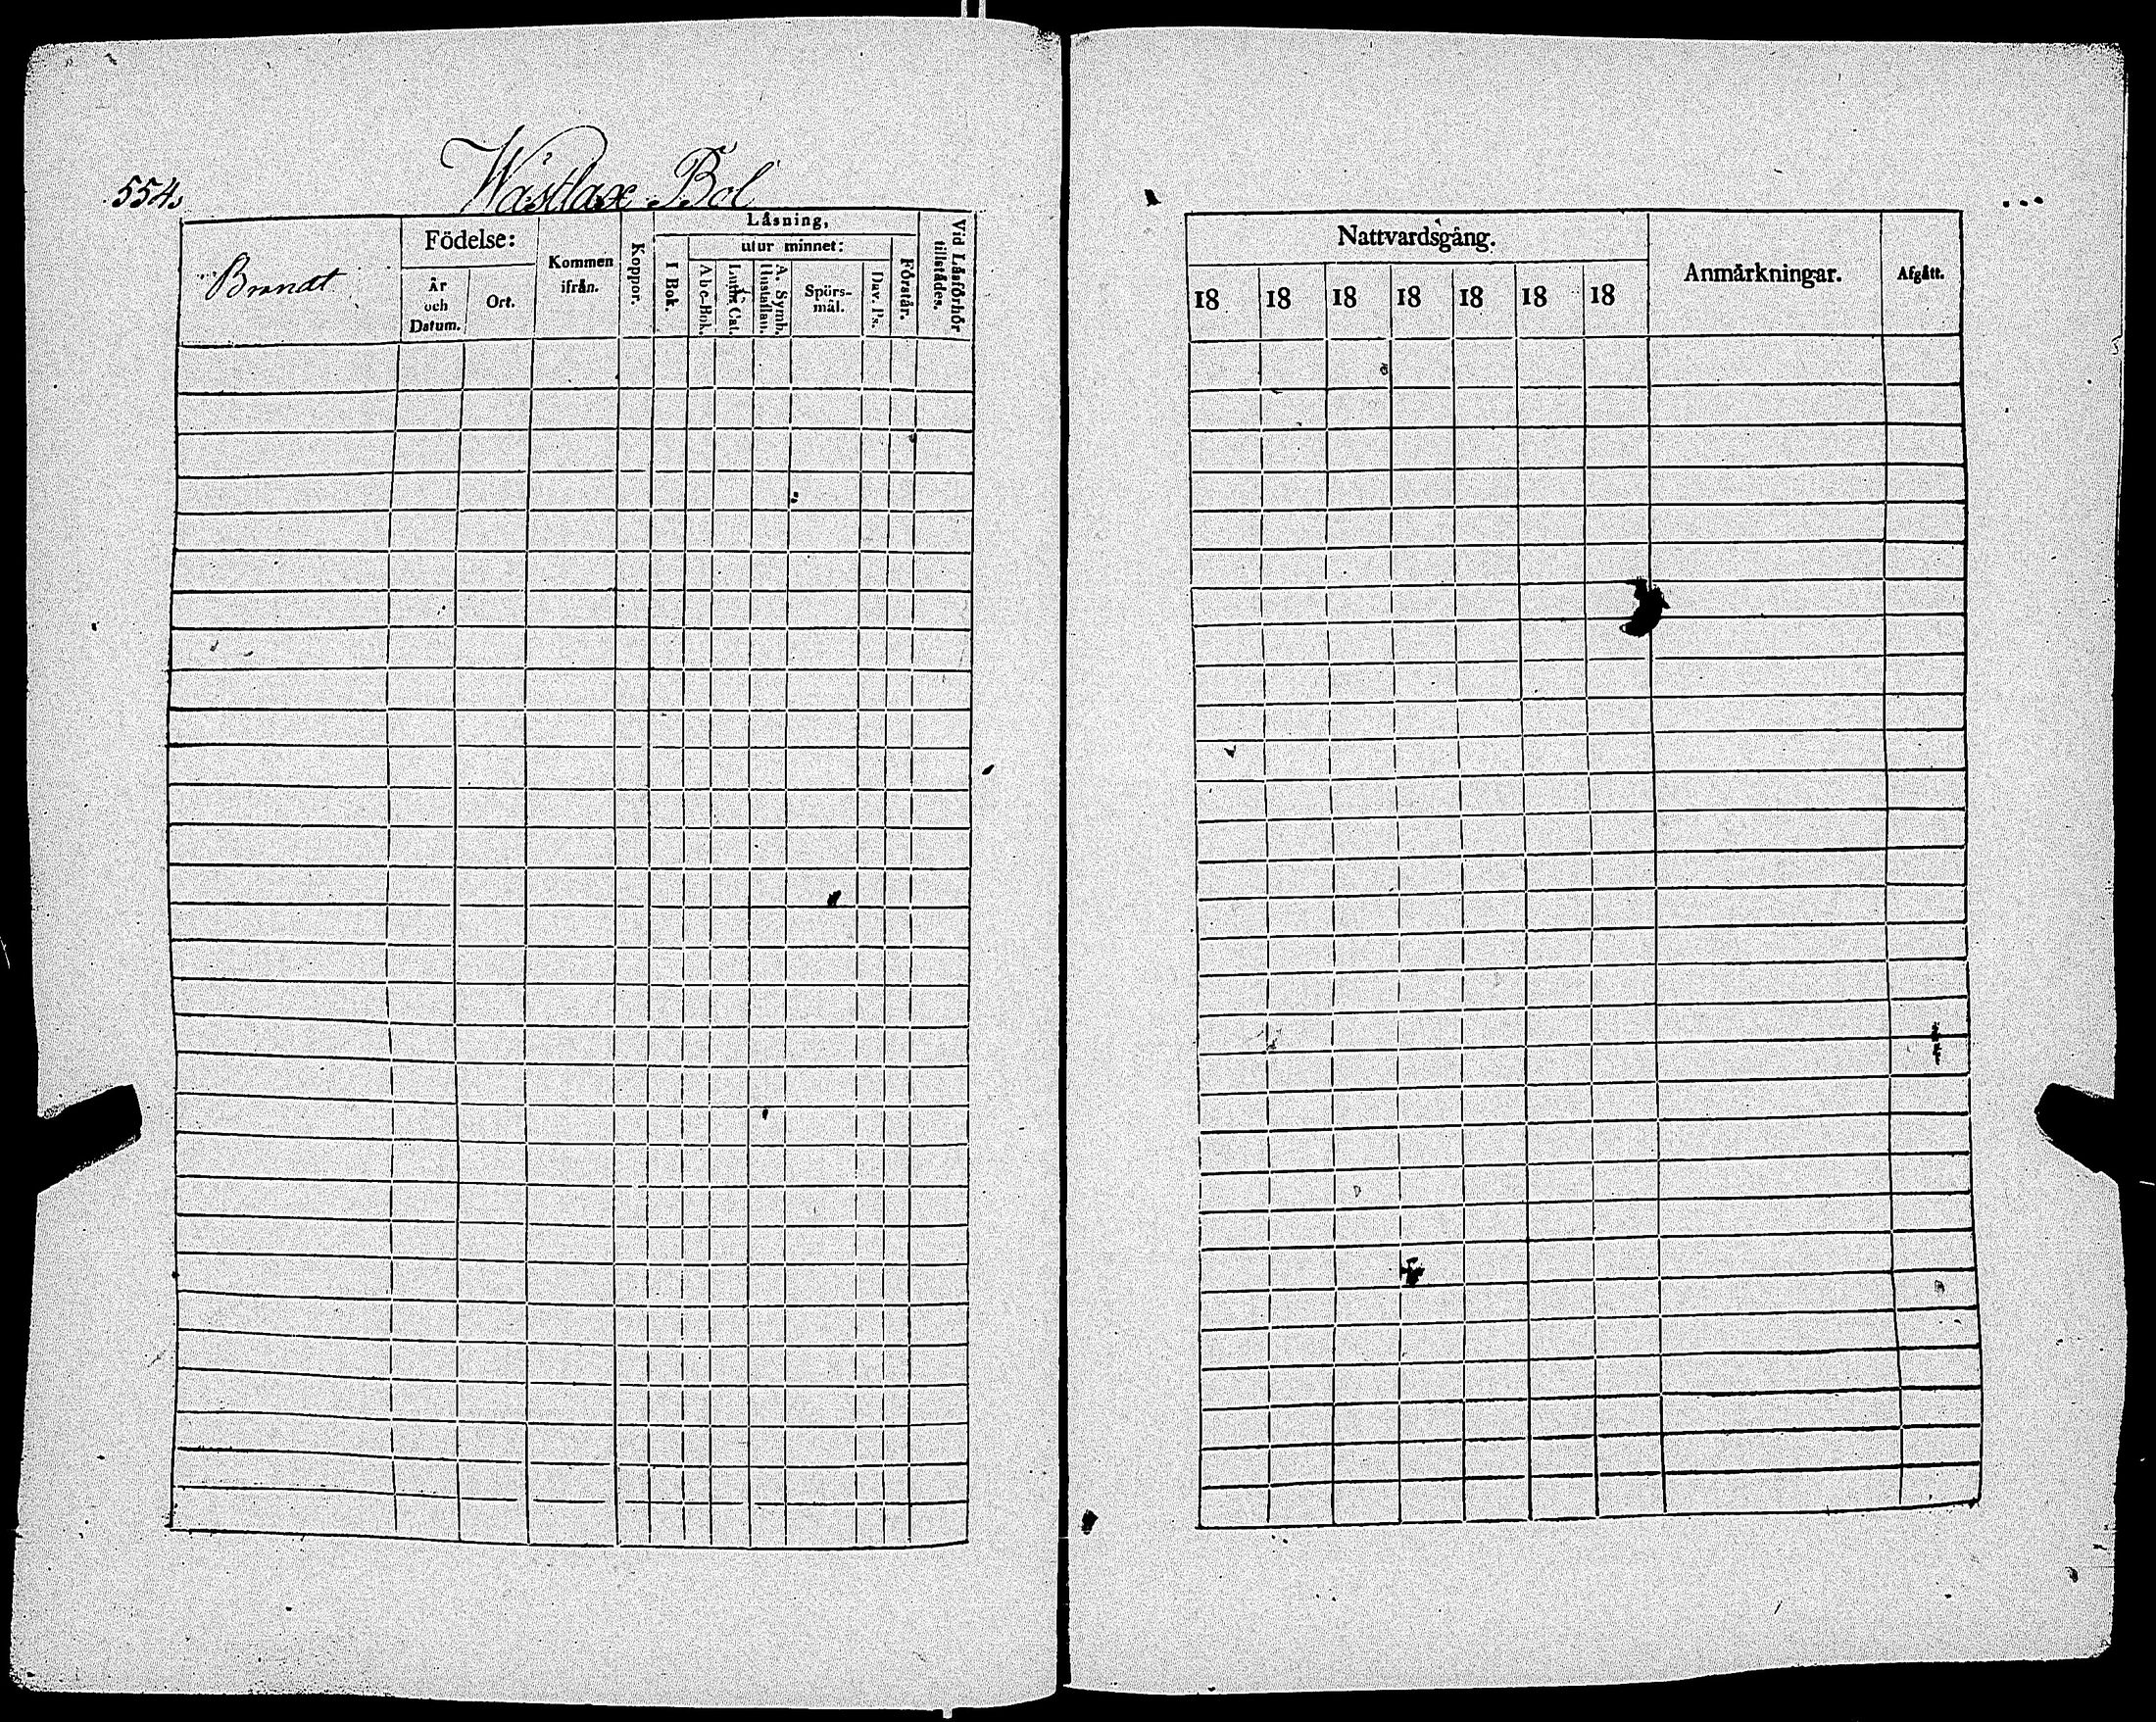 554.
Wästlax Bol
Brandt
Födelse:
År och Datum.
Ort.
Kommen ifrån.
Koppor.
Läsning,
I Bok.
utur minnet:
Abc-Bok.
Luth. Cat.
A. Symb. Hustaflan.
Spörs-mål.
Dav. Ps.
Förstår.
Vid Läsförhör tillstädes.
Nattvardsgång.
18 18 18 18 18 18 18
Anmärkningar.
Afgått.